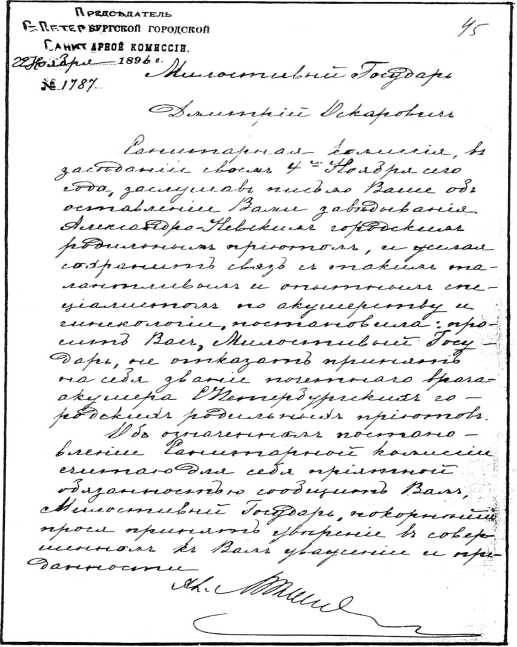 Председатель
С-Петербургской городской
Санитарной Комиссіи.
22 Ноября 1896 г.
№ 1787.
45
Милостивый Государь
Дмитрій Оскаровичъ
Санитарная Комиссія, въ
засѣданіи своемъ 4го Ноября сего
года, заслушавъ письмо Ваше объ
оставленіи Вами завѣдыванія
Александро-Невскимъ городскимъ
родильнымъ пріютомъ, и желая
сохранить связь съ такимъ та-
лантливымъ и опытнымъ спе-
ціалистомъ по акушерству и
гинекологіи, постановила: про-
сить Васъ, Милостивый Госу-
дарь, не отказать принять
на себя званіе почетнаго врача-
акушера С.Петербургскихъ го-
родскихъ родильныхъ пріютовъ.
Объ означенномъ постано-
вленіи Санитарной Комиссіи
считаю для себя пріятной
обязанностью сообщить Вамъ,
Милостивый Государь, покорнѣйше
прося принять увѣреніе въ совер-
шенномъ къ Вамъ уваженіи и пре-
данности